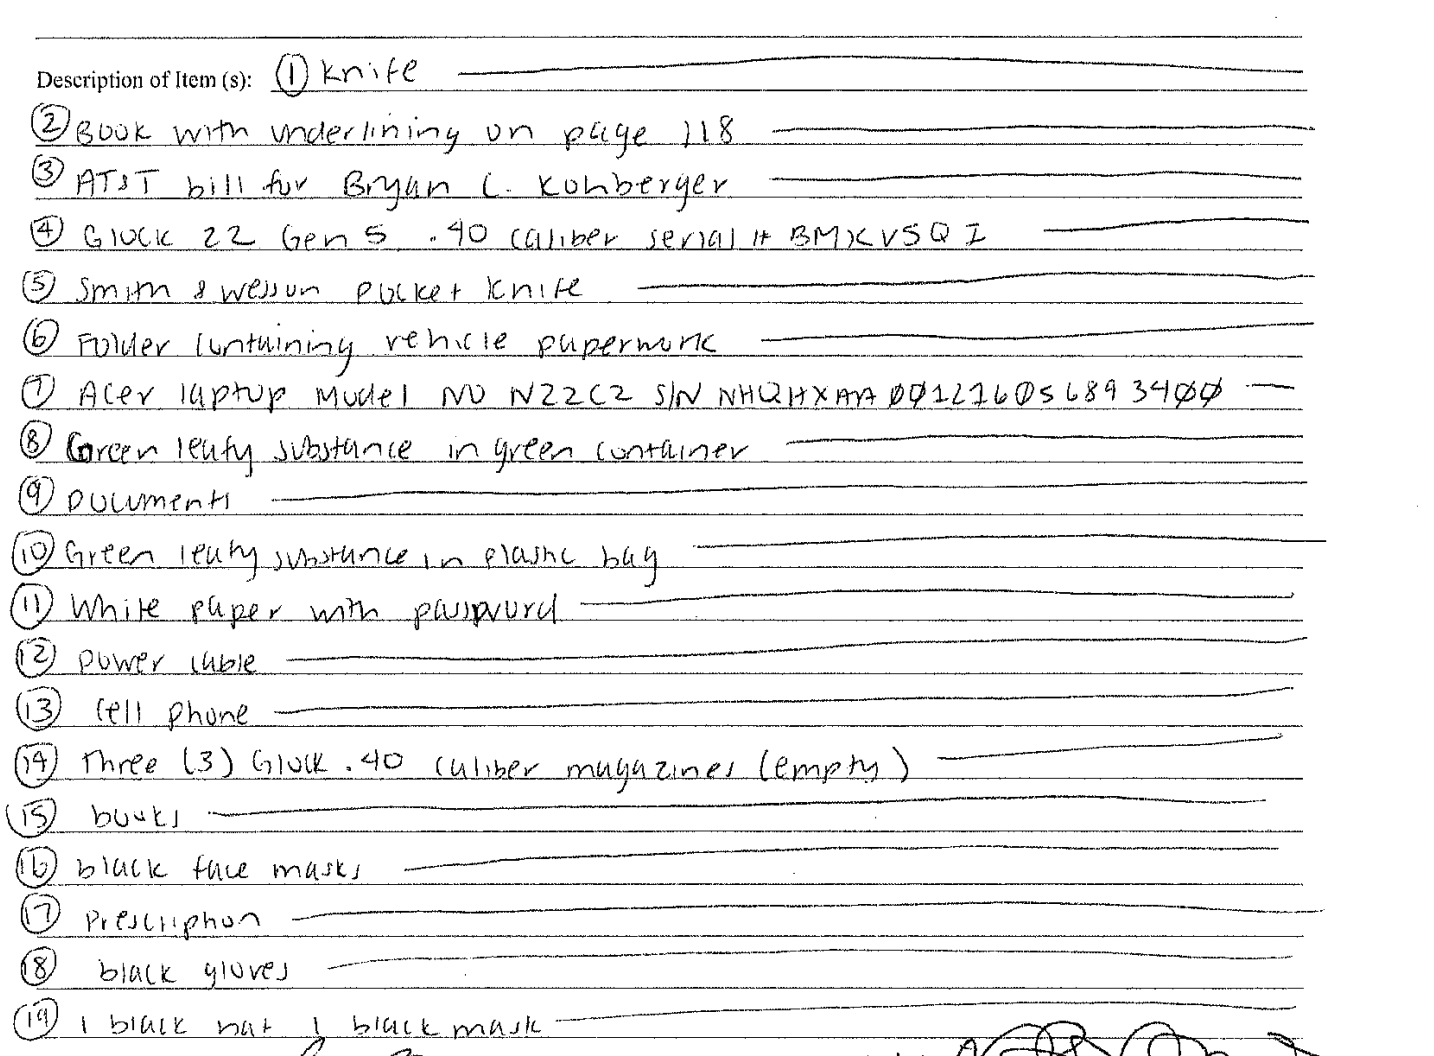 Description of Item (s): ① Knife
② Book with underlining on page 118
③ AT&T bill for Bryan C. Kohberger
④ Glock 22 Gen 5 .40 caliber serial #
⑤ Smith & Wesson pocket knife
⑥ Folder containing vehicle paperwork
⑦ Acer laptop Model NO N22C2 S/N
⑧ Green leafy substance in green container
⑨ Documents
⑩ Green leafy substance in plastic bag
⑪ White paper with password
⑫ power cable
⑬ cell phone
⑭ Three (3) Glock .40 caliber magazines (empty)
⑮ books
⑯ black face masks
⑰ Prescription
⑱ black gloves
⑲ 1 black hat 1 black mask